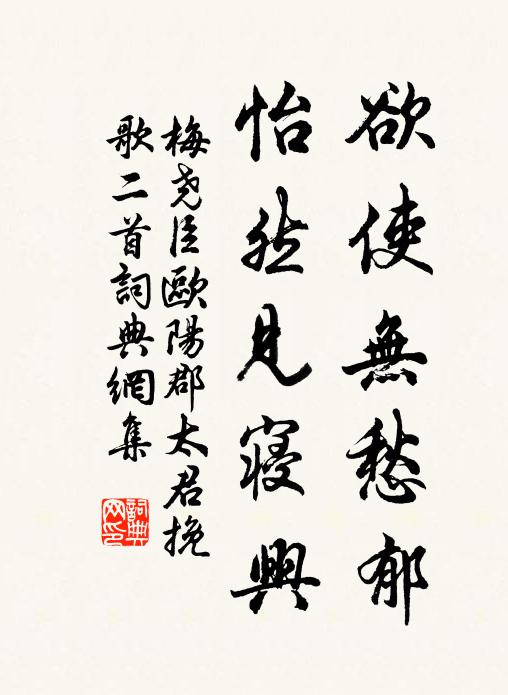 欲使無愁郁
怡然見寢興
梅尧臣歐陽郡太君挽
歌二首詞典網集
詞典网印